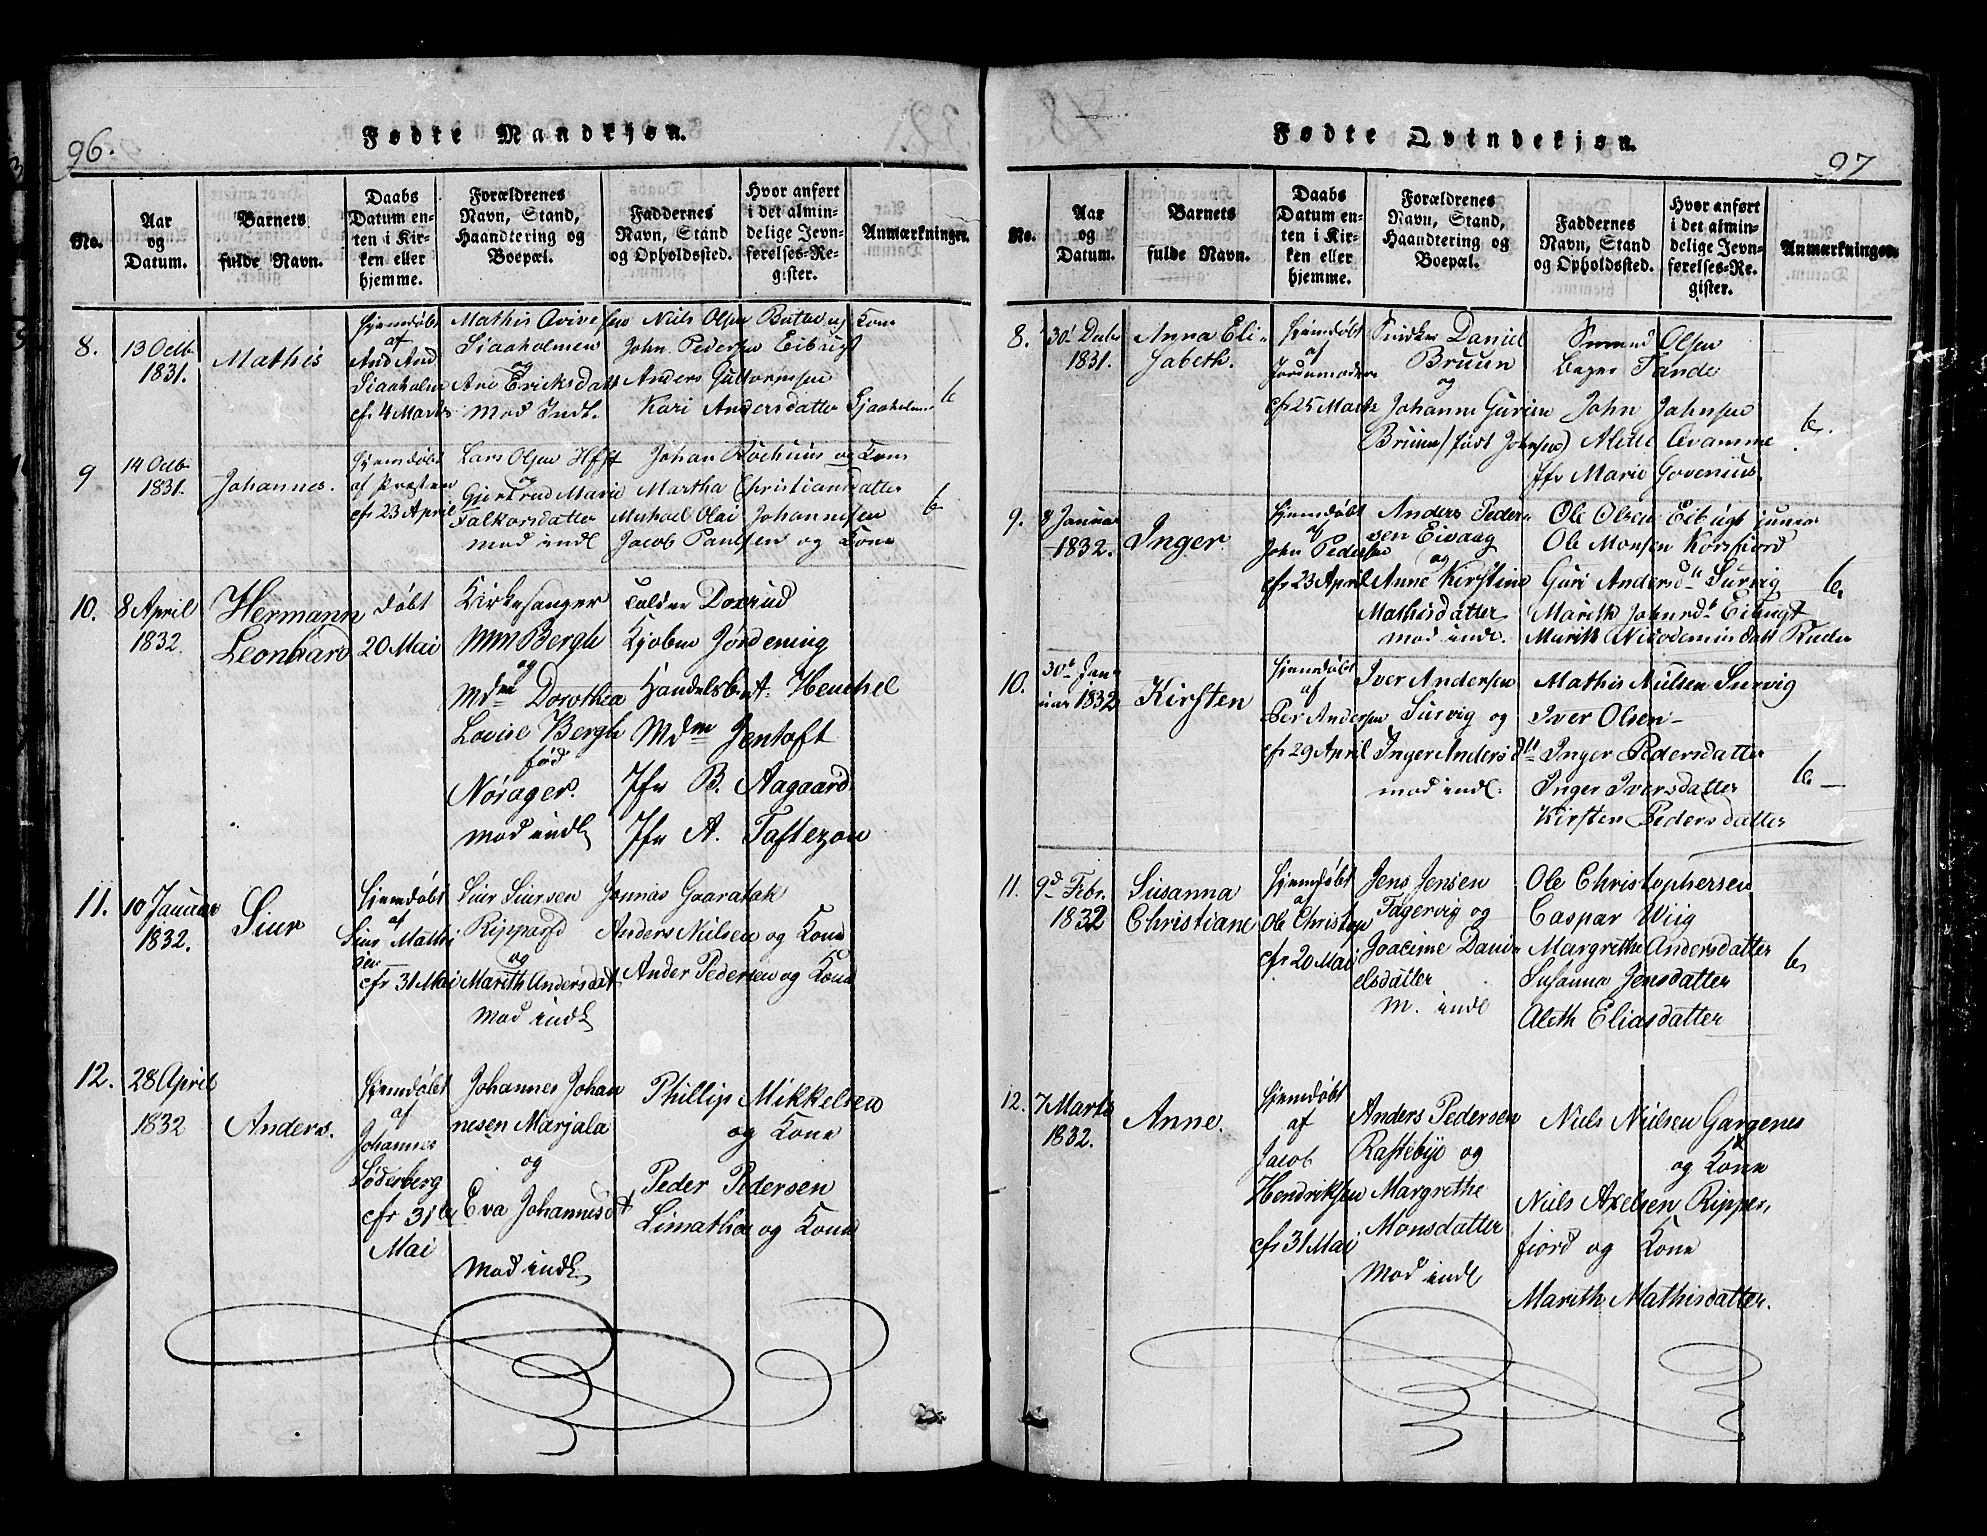 96.
Fødte Mandkjøn.
No.
Aar
og
Datum.
Barnets
fulde Navn.
Daabs
Datum en-
ten i Kir-
ken eller
hjemme.
Forældrenes
Navn, Stand,
Haandtering og
Boepæl.
Faddernes
Navn, Stand
og Opholdssted.
Hvor anført
i det almin-
delige Jevn-
førelses-Re-
gister.
Anmærkninger.
8.
13 Octb
1831.
Mathis
Hjemdøbt
af
And And
Siaaholm
cfr 4 Marts
Mathis
Siaaholmen
og
Ane Ericksdatt
mod Indl.
Niels Olsen og Kone
John Pedersen Eibugt
Anders Guttormsen
Kari Andersdatter Sjaaholmen
6
9
14 Octb
1831.
Johannes.
Hjemdøbt
af Præsten
cfr 23 April
Lars Olsen
og
Gjertrud Marie
Falkorsdatter
mod indl
Johan Rochuus og Kone
Martha Christiansdatter
Michael Olai Johannesen
Jacob Paulsen og Kone
6
10.
8 April
1832.
Hermann
Leonhard
døbt
20 Mai
Kirkesanger
Bergh
og
Mdm Dorothea
Lovise Bergh
fød
Nørager.
mod indl
Kjøbm Jordening
Handelsbet. Henchel
Mdm Jentoft
Jfr B. Aagaard
Jfr A. Taftezon
11.
10 Januar
1832.
Siur
Hjemdøbt
af
Siur Mathi
sen
cfr 31 Mai
Siur Siursen
Ripparfd
og
Marith Andersdat
mod indl
Jonnas Gaaratak
Anders Nielsen og Kone
Ander Pedersen og Kone
12.
28 April
1832
Anders.
Hjemdøbt
af
Johannes
Søderberg
cfr 31te
Mai
Johannes Johan
nesen Marjala
og
Eva Johannesdt
mod indl
Phillip Mikkelsen
og Kone
Peder Pedersen
Limatha og Kone
97
Fødte Qvindekjøn.
No.
Aar
og
Datum.
Barnets
fulde Navn.
Daabs
Datum en-
ten i Kir-
ken eller
hjemme.
Forældrenes
Navn, Stand,
Haandtering og
Boepæl.
Faddernes
Navn, Stand
og Opholdssted.
Hvor anført
i det almin-
delige Jevn-
førelses-Re-
gister.
Anmærkninger.
8.
30 Decbr
1831.
Anna Eli-
sabeth.
Hjemdøbt
af
Jordemoderen
cfr 25 Marts
Snidker Daniel
Bruun
og
Johanne Gurine
Bruun (født Johnsen)
Olsen
Bager Tande
John Jahnsen
Aletie Avamme
Jfr Marie Govenius
6.
9.
8 Januar
1832.
Inger
Hjemdøbt
af
John Pedersen
cfr 23 April
Anders Peder
sen Eivaag
og
Anne Kirstine
Mathisdatter
mod indl.
Ole Olsen Eibugt junior
Ole Monsen Korsfiord
Guri Andersdtt Survig
Marith Johnsdt Eibugt
Marith Nicodemisdatt
6
10.
30te Jan-
uar 1832
Kirsten
Hjemdøbt
af
Per Andersen
cfr 29 April
Iver Andersen
Survig og
Inger Andersdtt
mod indl.
Mathis Nielsen Survig
Iver Olsen
Inger Pedersdatter
Inger Iversdatter
Kirsten Pedersdatter
6
11.
9d Febr.
1832
Susanna
Christiane
Hjemdøbt
af
Ole Christop
cfr 20 Mai
Jens Jensen
Fagervig og
Joacime Dani-
elsdatter
M. indl
Ole Christophersen
Caspar Wiig
Margrethe Andersdatter
Susanna Jensdatter
Aleth Eliasdatter
6
12.
7 Marts
1832.
Anne.
Hjemdøbt
af
Jacob
Hendriksen
cfr 31 Mai
Anders Pedersen
Rastebye og
Margrethe
Monsdatter
mod indl
Niels Nielsen Gargenes
og Kone
Niels Axelsen Ripper-
fiord og Kone
Marith Mathisdatter.